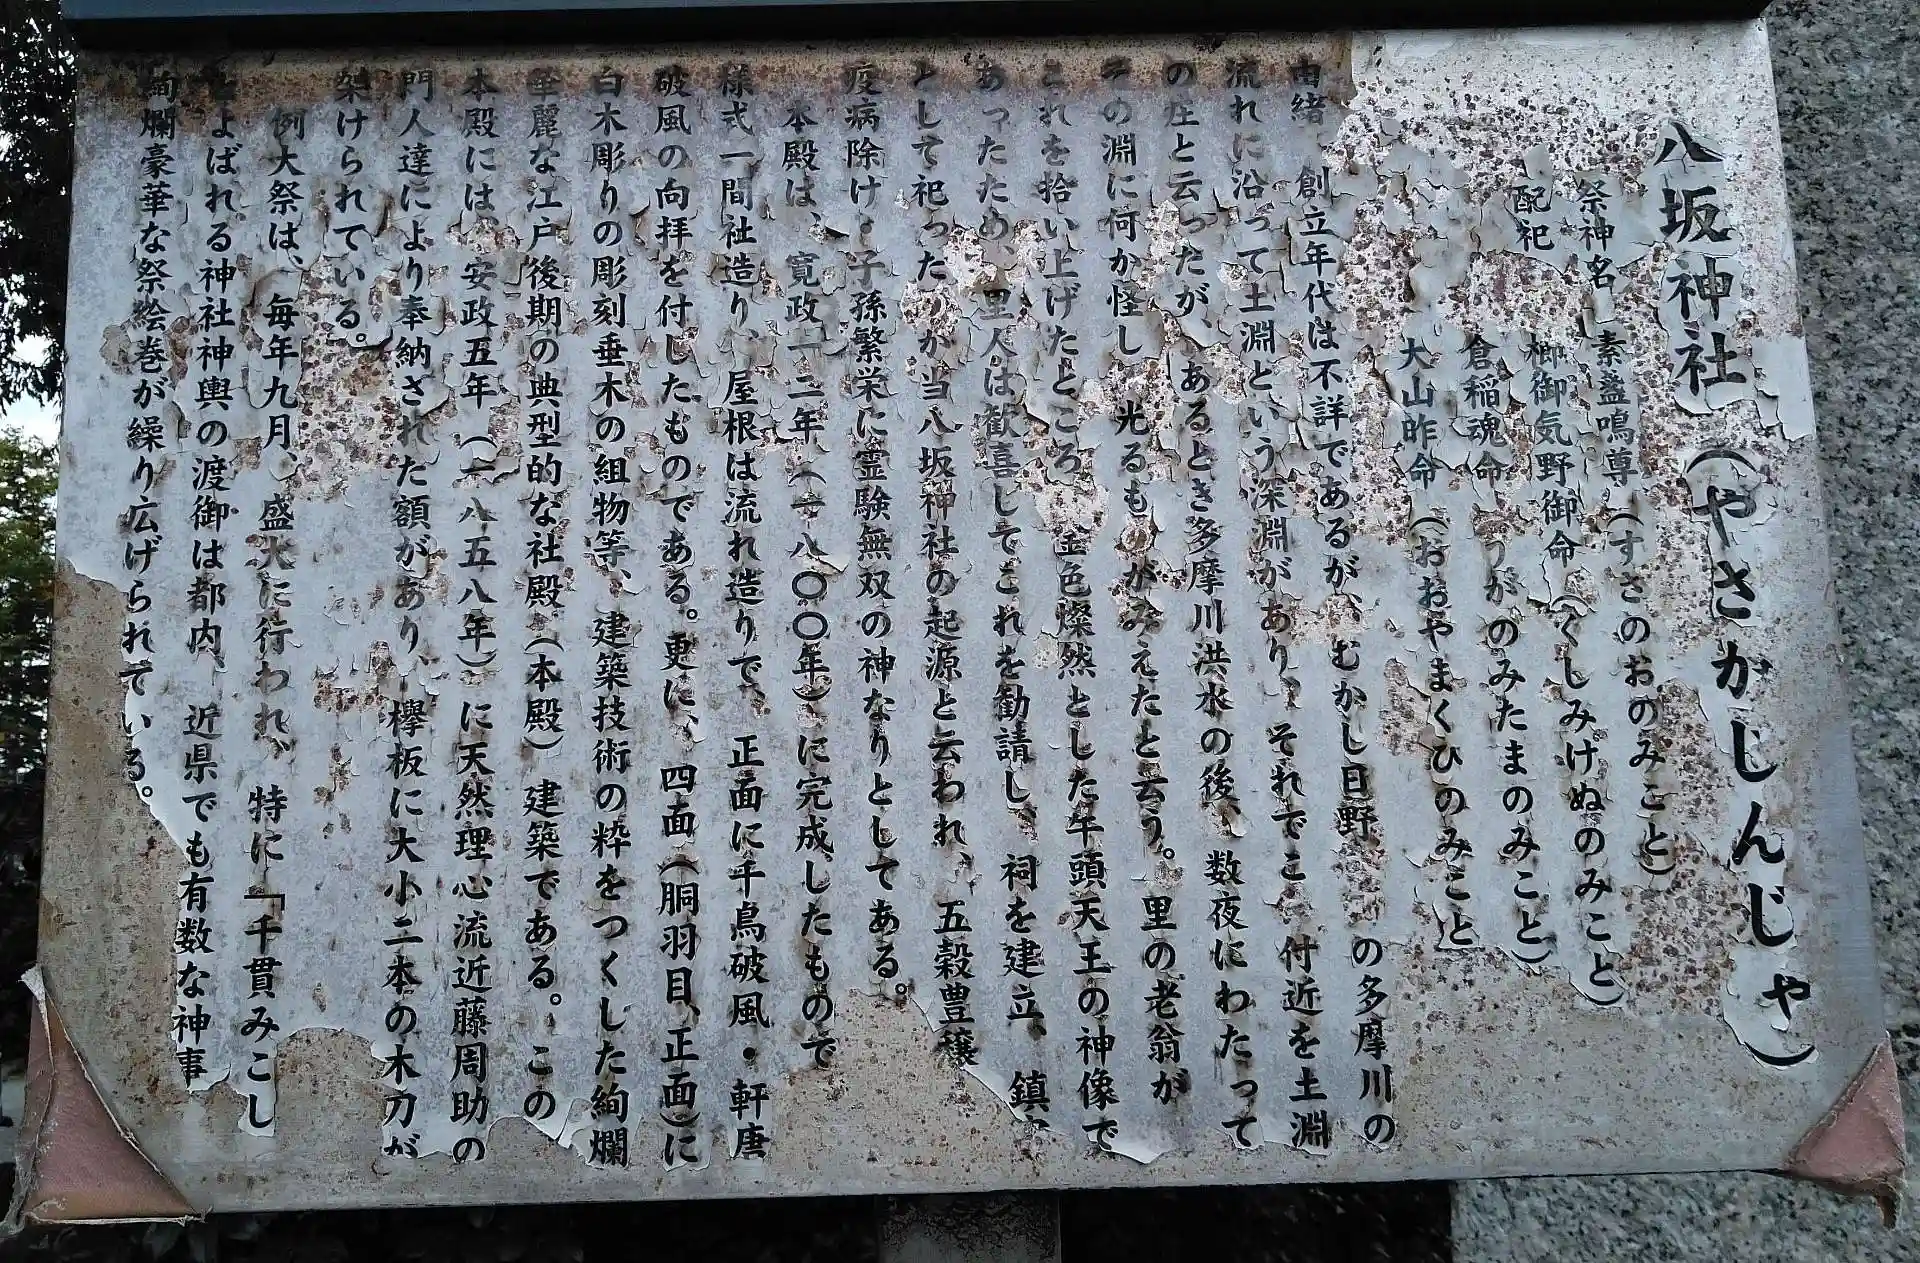 八坂神社(やさかじんじゃ)
祭神名 素盞鳴尊(すさのおのみこと)
櫛御気野御命(くしみけぬのみこと)
配祀 倉稲魂命(うがのみたまのみこと)
大山昨命(おおやまくひのみこと
由緒 創立年代は不詳であるが、むかし日野 の多摩川の
流れに沿って土淵という深淵があり、それでこ 付近を土淵
の庄と云ったが、あるとき多摩川洪水の後、数夜にわたって
その淵に何か怪し 光るも がみえたと云う。里の老翁が
これを拾い上げたところ 金色燦然とした午頭天王の神像で
あったため、里人は歓喜してこれを勧請し、祠を建立、鎮
として祀ったのが当八坂神社の起源と云われ、五穀豊穣
疫病除け・子孫繁栄に霊験無双の神なりとしてある。
本殿は、寛政一二年(一八〇〇年)に完成したもので
様式一間社造り、屋根は流れ造りで、正面に千鳥破風・軒唐
破風の向拝を付したものである。更に、四面(胴羽目、正面)に
白木彫りの彫刻垂木の組物等、建築技術の粋をつくした絢爛
華麗な江戸後期の典型的な社殿(本殿)建築である。この
本殿には、安政五年(一八五八年)に天然理心流近藤周助の
門人達により奉納された額があり、欅板に大小二本の木刀が
架けられている。
例大祭は、毎年九月、盛大に行われ、特に「千貫みこし
とよばれる神社神輿の渡御は都内、近県でも有数な神事
絢爛豪華な祭絵巻が繰り広げられている。